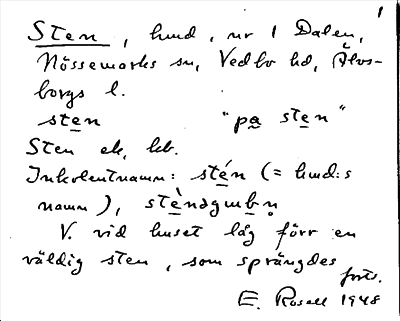 1
Sten, hmd, nr 1 Dalen,
Nössemarks sn, Vedbo hd, Älvs-
borgs l.
sten "pa sten"
Sten ek, kb.
Inkolentnamn: stén (= hmd:s
namn), stènəgɯbn̥
V. vid huset låg förr en
väldig sten, som sprängdes
forts.
E. Rosell 1948